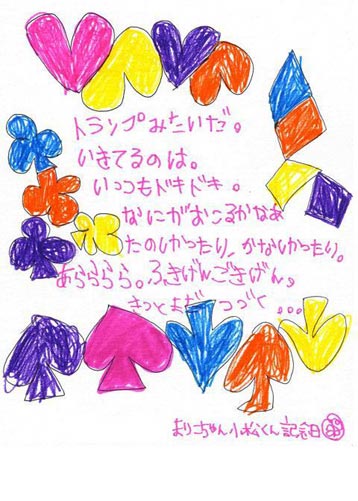 トランプみたいだ。
いきてるのは。
いっつもドキドキ。
なにがおこるかなあ
たのしかったり、かなしかったり。
あらららら。ふきげんごきげん。
きっとまだ つづく...
まりこちゃん小松くん記念日